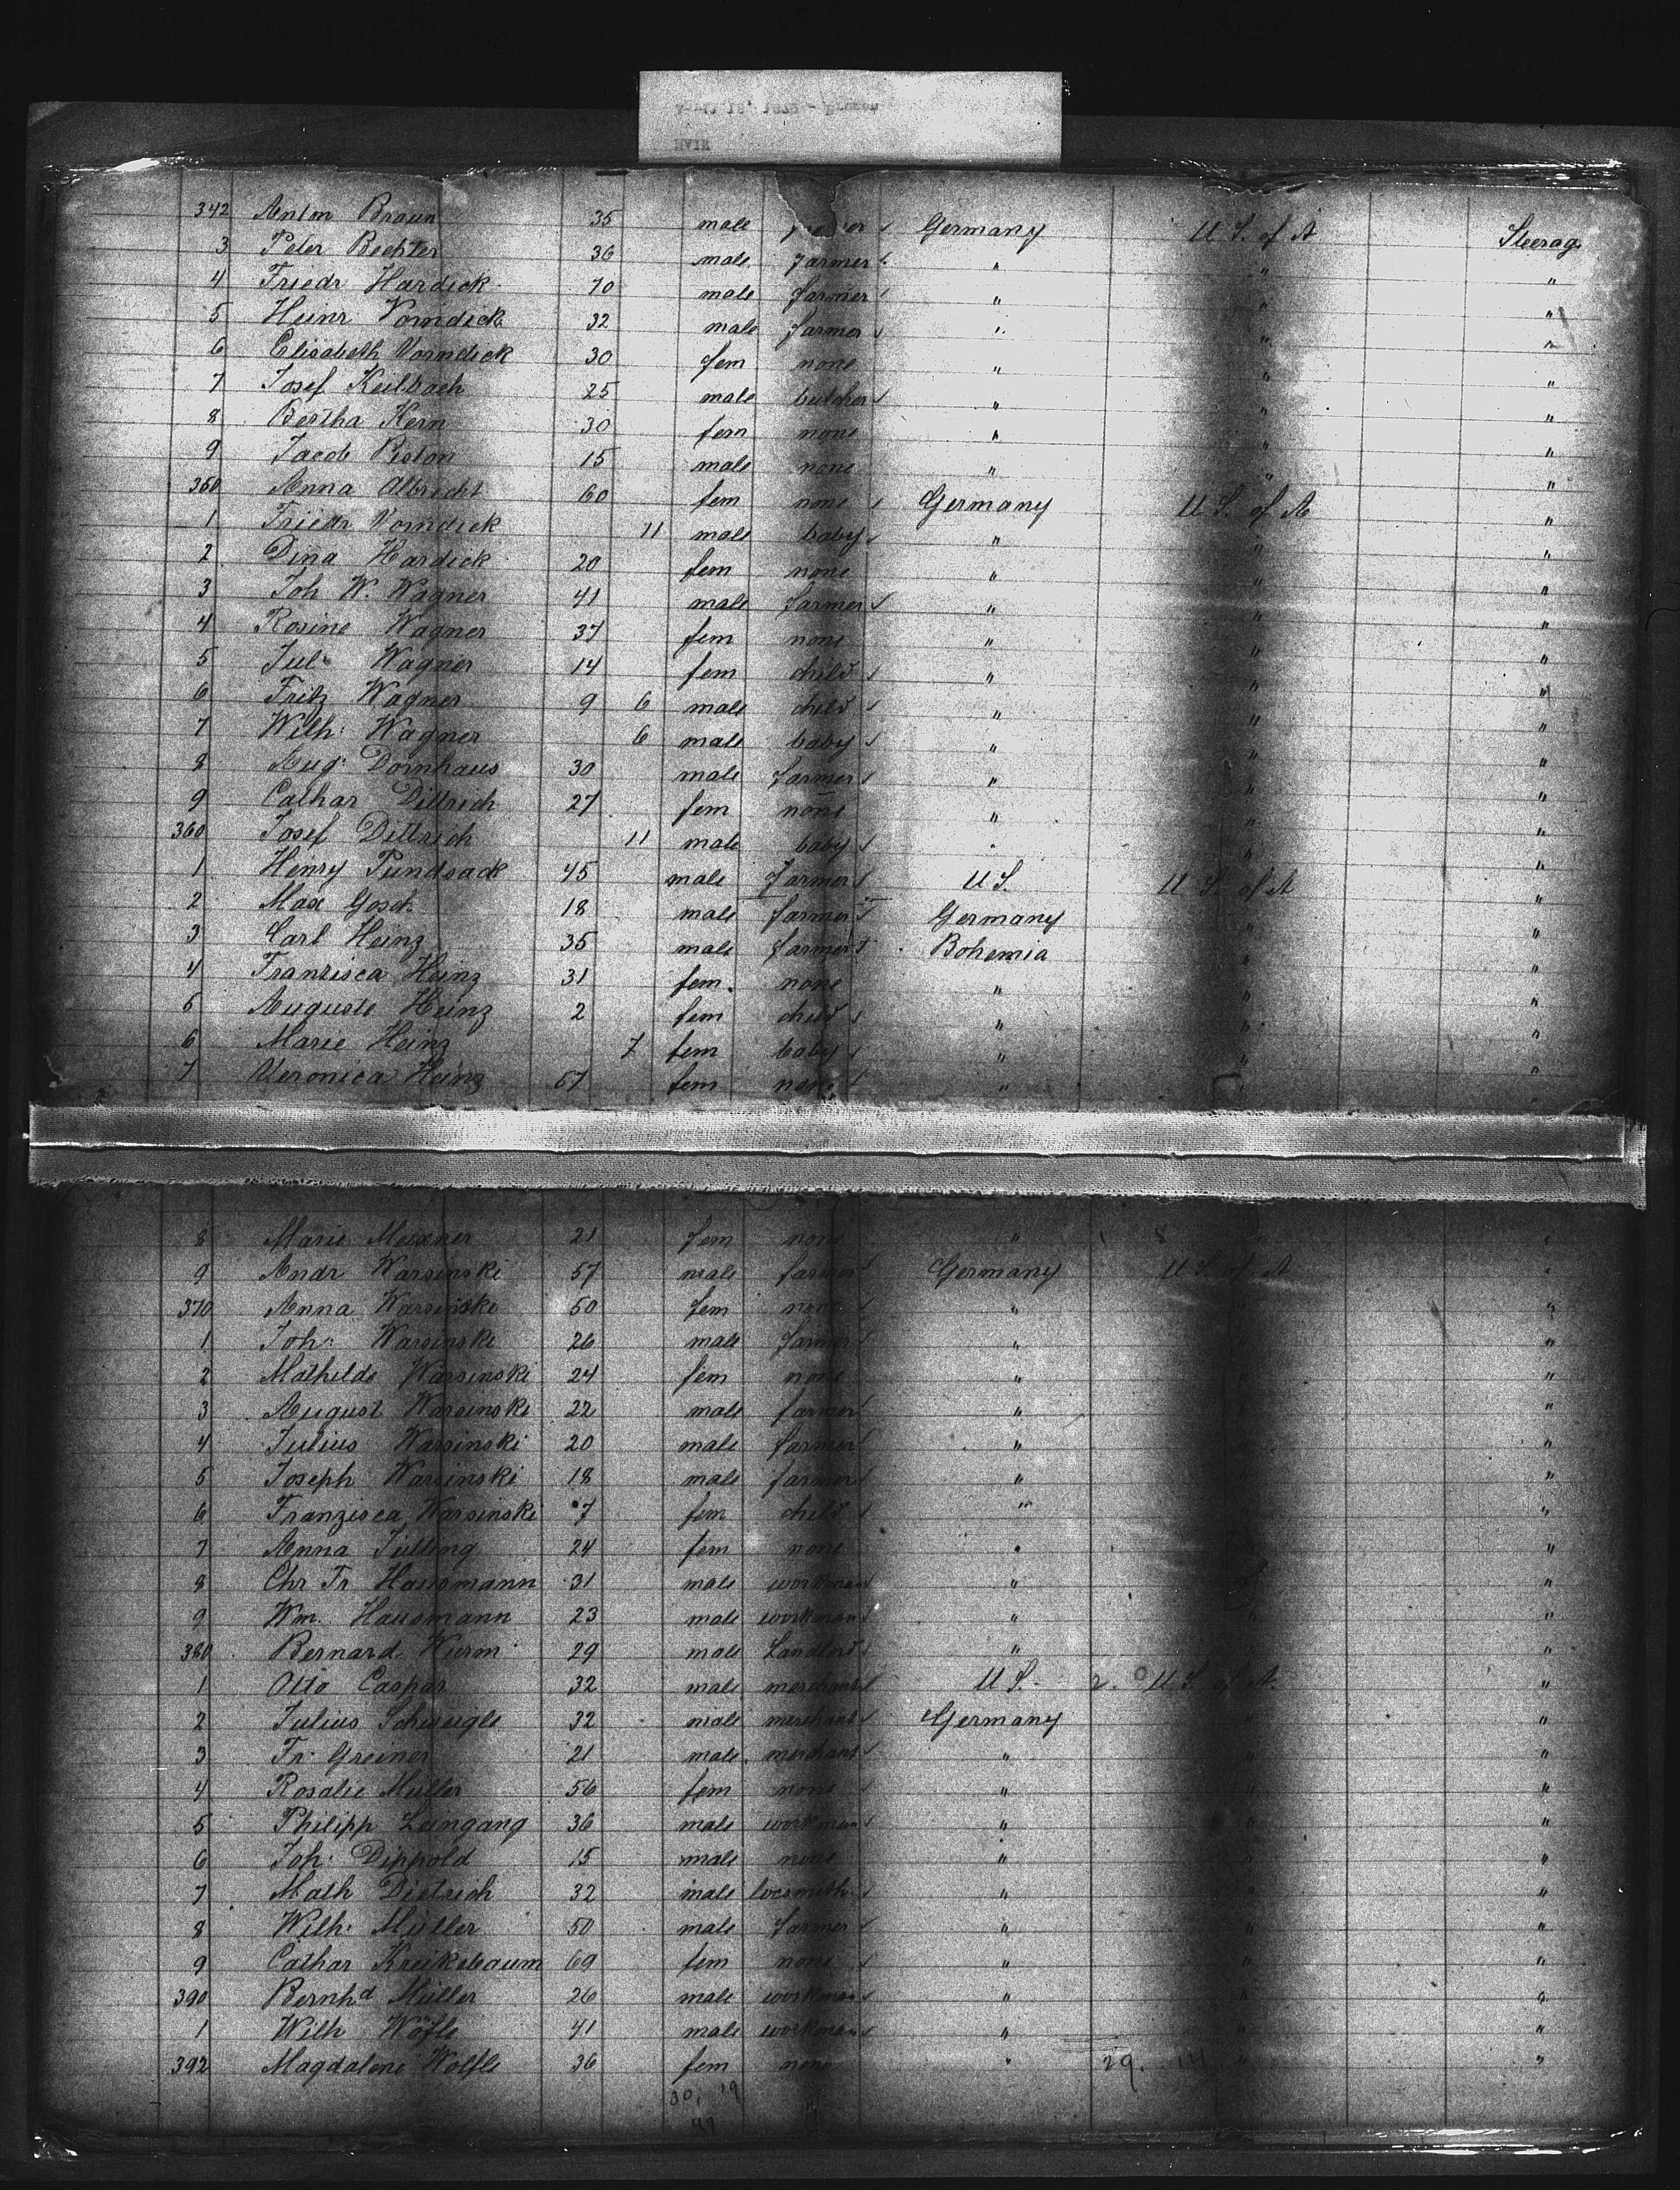 342 Anton Braun 35 male Germany U S. of A Steerag
3 Peter Bechter 36 male farmer " " "
4 Friedr Hardick 70 male farmer " " "
5 Heinr Vorndick 32 male farmer " " "
6 Elisabeth Vorndick 30 fem none " " "
7 Josef Keilbach 25 male butcher " " "
8 Bertha Kern 30 fem none " " "
9 Jacob Piston 15 male none " " "
350 Anna Albrecht 60 fem none Germany U S. of A "
1 Friedr Vorndick 11 male baby " " "
2 Dina Hardick 20 fem none " " "
3 Joh W. Wagner 41 male farmer " " "
4 Rosine Wagner 37 fem none " " "
5 Jul: Wagner 14 fem child " " "
6 Fritz Wagner 9 6 male child " " "
7 Wilh: Wagner 6 male baby " " "
8 Aug: Dornhaus 30 male farmer " " "
9 Cathar Dittrich 27 fem none " " "
360 Josef Dittrich 11 male baby " " "
1 Henry Pundsack 45 male farmer U S. U S of A "
2 Max Gosch 18 male farmer Germany " "
3 Carl Heinz 35 male farmer Bohemia " "
4 Franzisca Heinz 31 fem. none " " "
5 Auguste Heinz 2 fem child " " "
6 Marie Heinz 7 fem baby " " "
7 Veronica Heinz 67 fem none " " "
8 Marie Meixner 21 fem none " "
9 Andr Warsinski 57 male farmer Germany U S. of A "
370 Anna Warsinski 50 fem none " " "
1 Joh: Warsinski 26 male farmer " " "
2 Mathilde Warsinski 24 fem none " " "
3 August Warsinski 22 male farmer " " "
4 Julius Warsinski 20 male farmer " " "
5 Joseph Warsinski 18 male farmer " " "
6 Franzisca Warsinski 7 fem child " " "
7 Anna Tulling 24 fem none " " "
8 Chr Fr Hausmann 31 male workman " " "
9 Wm. Hausmann 23 male workman " " "
380 Bernard Wurm 29 male Landlord " " "
1 Otto Caspar 32 male merchant U S. U S. of A. "
2 Julius Schweigle 32 male merchant Germany " "
3 Fr: Greiner 21 male merchant " " "
4 Rosalie Müller 56 fem none " " "
5 Philipp Leingang 36 male workman " " "
6 Joh: Dippold 15 male none " " "
7 Math Dietrich 32 male locsmith " " "
8 Wilh: Müller 50 male farmer " " "
9 Cathar Kreikebaum 69 fem none " " "
390 Bernhd Müller 26 male workman " " "
1 Wilh Wöfle 41 male workman " " "
392 Magdalene Wölfle 36 fem none " " "